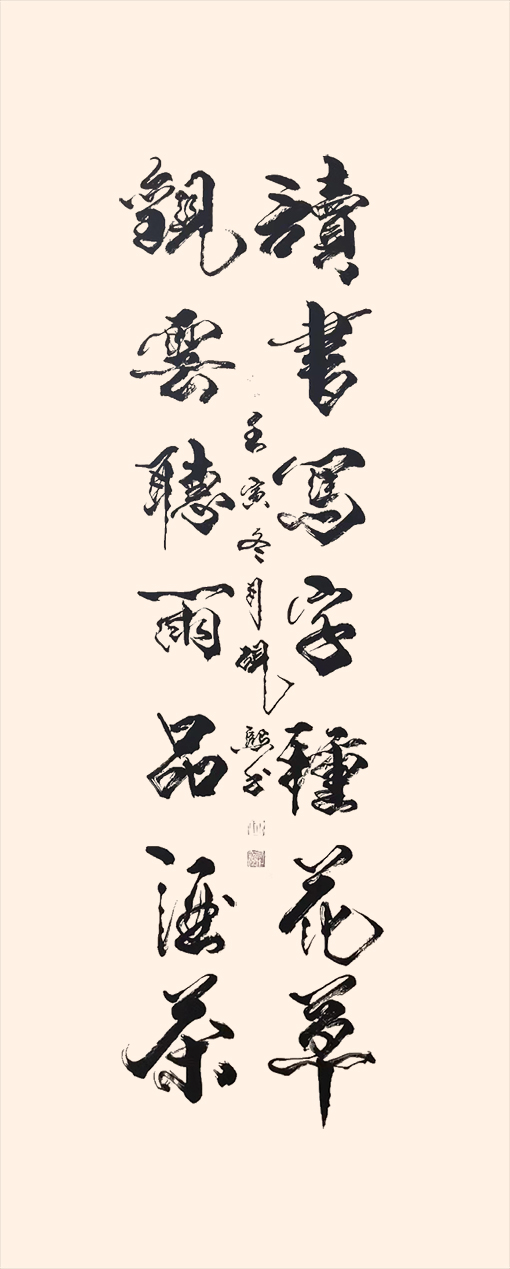 讀書寫字種花草
觀雲聽雨品酒茶
壬寅冬月